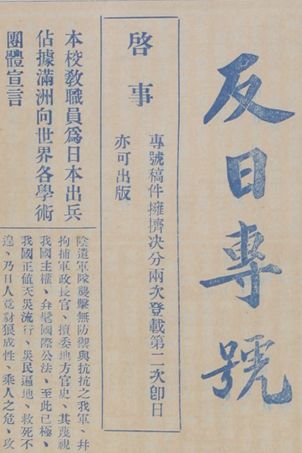 反日專號
啓事
專號稿件擁擠决分兩次登載第二次即日
亦可出版
本校敎職員爲日本出兵
佔據滿洲向世界各學術
團體宣言
陰遣軍隊襲擊無防禦與抗抗之我軍、幷
拘捕軍政長官、擅委地方官吏、其蔑視
我國主權、弁髦國際公法、至此已極、
我國正値天災流行、災民遍地、救死不
遑、乃日人竟豺狼成性、乘人之危、攻